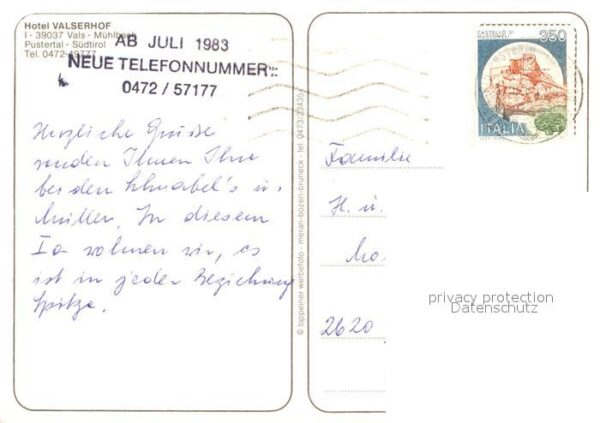 Hotel VALSERHOF
I - 39037 Vals - Mühlbach
Pustertal - Südtirol
Tel. 0472-49777
AB JULI 1983
NEUE TELEFONNUMMER:
0472 / 57177
Herzliche Grüße
senden Ihnen Ihre
beiden Schnabel's u.
In diesem
wohnen wir, es
ist in jeder Beziehung
Spitze.
© tappeiner werbefoto - meran-bozen-bruneck - tel. 0473/23435
350
ITALIA
Familie
H. u.
2620
privacy protection
Datenschutz